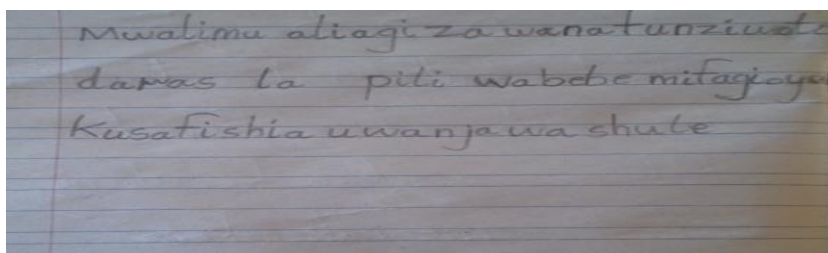 Mwalimu aliagiza wanafunzi wote
damas la piti wabebe mifagio ya
Kusafishia uwanja wa shule